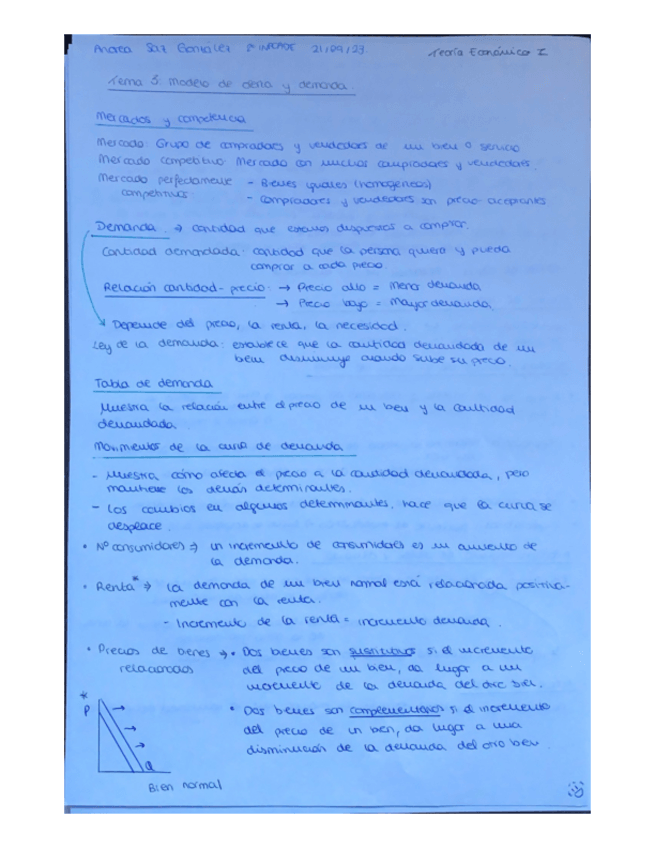 Andrea Saz González 1º INFOADE 21/09/23 Teoría Económica I
Tema 3: Modelo de oferta y demanda.
Mercados y competencia
Mercado: Grupo de compradores y vendedores de un bien o servicio
Mercado competitivo: Mercado con muchos compradores y vendedores.
Mercado perfectamente - Bienes iguales (homogéneos)
competitivos - Compradores y vendedores son precio-aceptantes
Demanda → cantidad que estamos dispuestos a comprar.
Cantidad demandada: cantidad que la persona quiera y pueda
comprar a cada precio.
Relación cantidad-precio: → Precio alto = menor demanda
→ Precio bajo = mayor demanda.
Depende del precio, la renta, la necesidad.
Ley de la demanda: establece que la cantidad demandada de un
bien disminuye cuando sube su precio.
Tabla de demanda
Muestra la relación entre el precio de un bien y la cantidad
demandada.
Movimientos de la curva de demanda
- Muestra cómo afecta el precio a la cantidad demandada, pero
mantiene los demás determinantes.
- Los cambios en algunos determinantes, hace que la curva se
desplace.
• Nº consumidores → un incremento de consumidores es un aumento de
la demanda.
• Renta* → la demanda de un bien normal está relacionada positiva-
mente con la renta.
- Incremento de la renta = incremento demanda.
• Precios de bienes → • Dos bienes son sustitutivos si el incremento
relacionados del precio de un bien, da lugar a un
incremento de la demanda del otro bien.
• Dos bienes son complementarios si el incremento
del precio de un bien, da lugar a una
disminución de la demanda del otro bien.
*
P
Q
Bien normal